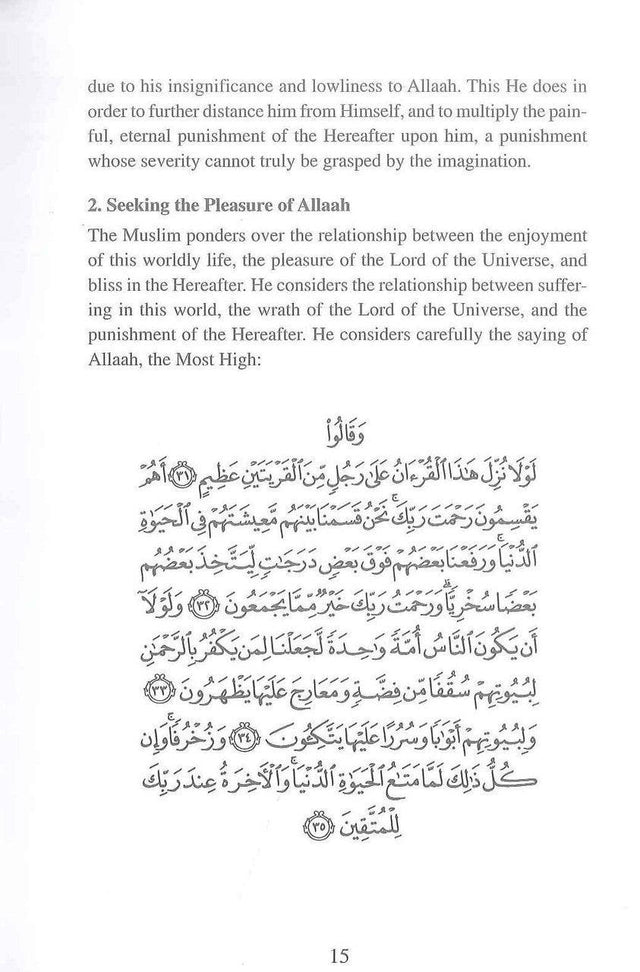 due to his insignificance and lowliness to Allaah. This He does in
order to further distance him from Himself, and to multiply the pain-
ful, eternal punishment of the Hereafter upon him, a punishment
whose severity cannot truly be grasped by the imagination.
2. Seeking the Pleasure of Allaah
The Muslim ponders over the relationship between the enjoyment
of this worldly life, the pleasure of the Lord of the Universe, and
bliss in the Hereafter. He considers the relationship between suffer-
ing in this world, the wrath of the Lord of the Universe, and the
punishment of the Hereafter. He considers carefully the saying of
Allaah, the Most High:
وَقَالُوا۟
لَوْلَا نُزِّلَ هَـٰذَا ٱلْقُرْءَانُ عَلَىٰ رَجُلٍ مِّنَ ٱلْقَرْيَتَيْنِ عَظِيمٍ ﴿٣١﴾ أَهُمْ
يَقْسِمُونَ رَحْمَتَ رَبِّكَ ۚ نَحْنُ قَسَمْنَا بَيْنَهُم مَّعِيشَتَهُمْ فِى ٱلْحَيَوٰةِ
ٱلدُّنْيَا ۚ وَرَفَعْنَا بَعْضَهُمْ فَوْقَ بَعْضٍ دَرَجَـٰتٍ لِّيَتَّخِذَ بَعْضُهُم
بَعْضًا سُخْرِيًّا ۗ وَرَحْمَتُ رَبِّكَ خَيْرٌ مِّمَّا يَجْمَعُونَ ﴿٣٢﴾ وَلَوْلَآ
أَن يَكُونَ ٱلنَّاسُ أُمَّةً وَٰحِدَةً لَّجَعَلْنَا لِمَن يَكْفُرُ بِٱلرَّحْمَـٰنِ
لِبُيُوتِهِمْ سُقُفًا مِّن فِضَّةٍ وَمَعَارِجَ عَلَيْهَا يَظْهَرُونَ ﴿٣٣﴾
وَلِبُيُوتِهِمْ أَبْوَٰبًا وَسُرُرًا عَلَيْهَا يَتَّكِـُٔونَ ﴿٣٤﴾ وَزُخْرُفًا ۚ وَإِن
كُلُّ ذَٰلِكَ لَمَّا مَتَـٰعُ ٱلْحَيَوٰةِ ٱلدُّنْيَا ۚ وَٱلْـَٔاخِرَةُ عِندَ رَبِّكَ
لِلْمُتَّقِينَ ﴿٣٥﴾
15